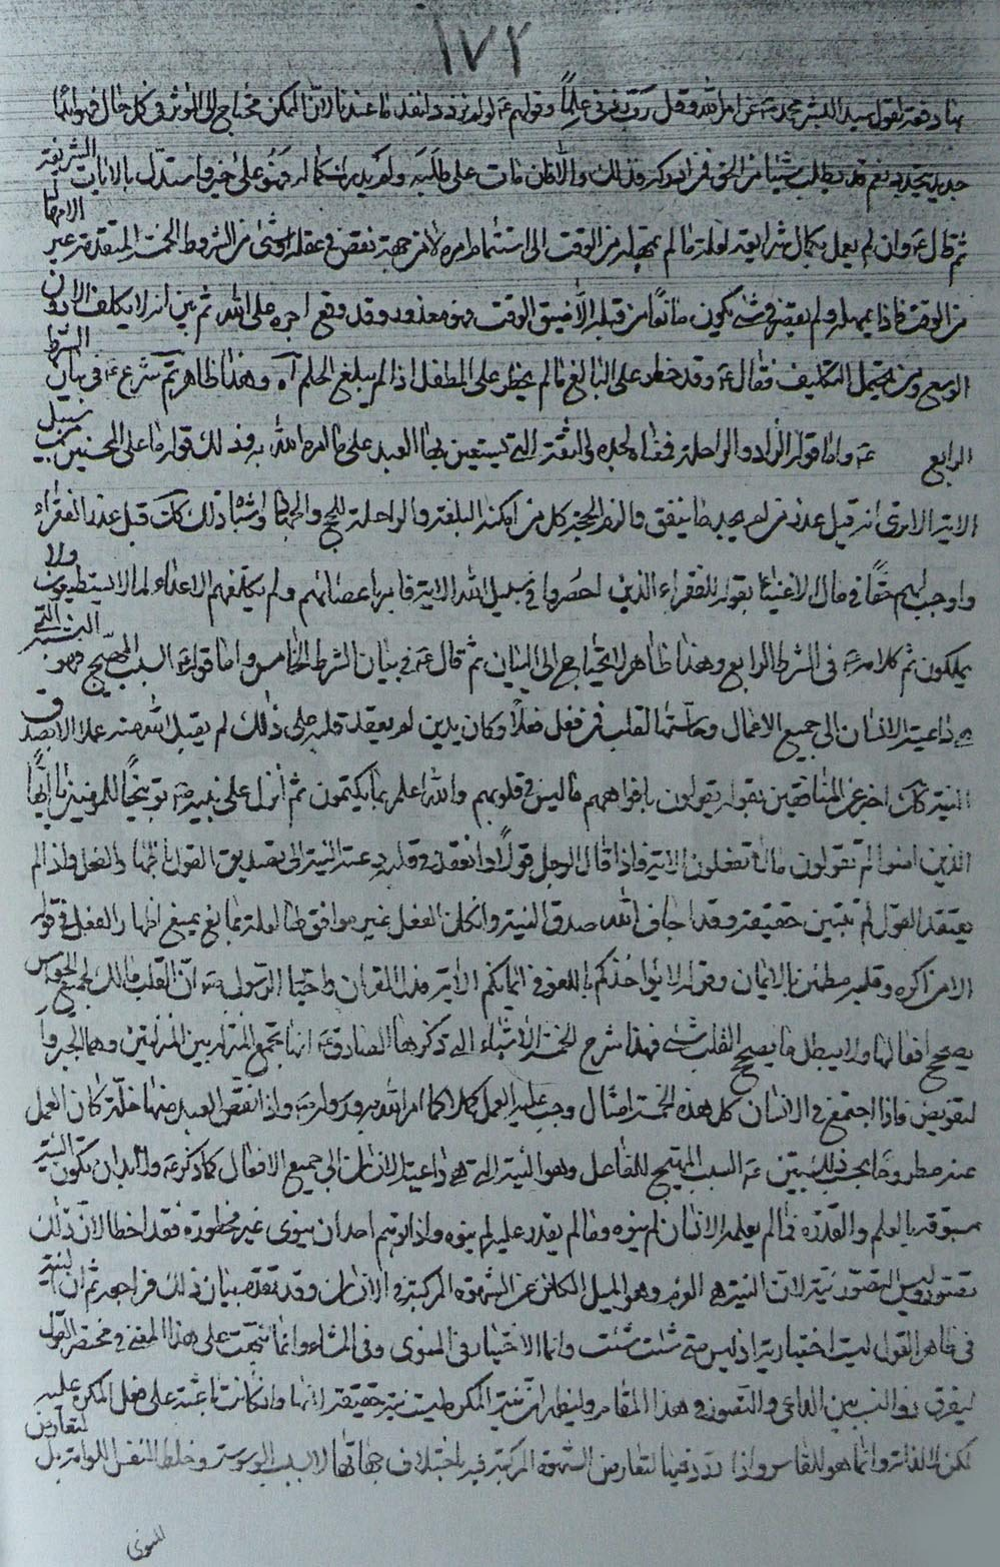 ١٧٢
لقول سيد البشر محمد ص عن امر الله وقل رب زدني علما وقولهم ع لو لم نزد لنفد ما عندنا لان الممكن محتاج الى المؤثر في كل حال فهو دائما
جديد نعم قد يطلب شيئا من الحق فذلك والا فان مات على طلبه ولم يدرك كماله فهو على خير واستدل بالايات الشريفة
ثم قال ع وان لم يعمل بكمال شرائعه لعلة ما لم يمهله من الوقت الى استتمام امره لا من جهة نقص في عقله او شيء من الشروط الخمسة المتقدمة غير الامهال
من الوقت فاذا لم يمهله ولم نقص في شيء يكون مانعا من قبله الا ضيق الوقت فهو معذور وقد وقع اجره على الله ثم بين انه لا يكلف الا دون
الوسع ومن يحتمل التكليف فقال ع وقد حظر على البالغ ما لم يحظر على الطفل اذا لم يبلغ الحلم آه وهذا ظاهر ثم شرع ع في بيان الشرط
الرابع ع واما قوله الزاد والراحلة فمعناه الجدة والبلغة التي يستعين بها العبد على ما امره الله به وذلك قوله ما على المحسنين من سبيل
الاية الا ترى انه قبل عذر من لم يجد ما ينفق والزم الحجة كل من امكنته البلغة والراحلة للحج والجهاد واشباه ذلك كك قبل عذر الفقراء
واوجب لهم حقا في مال الاغنياء بقوله للفقراء الذين احصروا في سبيل الله الاية فامر باعفائهم ولم يكلفهم الاعداد لما لا يستطيعون ولا
يملكون تم كلامه ع في الشرط الرابع وهذا ظاهر لا يحتاج الى البيان ثم قال ع في بيان الشرط الخامس واما قوله ع السبب المهيج فهو النية التي
هي داعية الانسان الى جميع الافعال وحاستها القلب فمن فعل فعلا وكان بدين لم يعقد قلبه على ذلك لم يقبل الله منه عملا الا بصدق
النية كك اخبر عن المنافقين بقوله يقولون بافواههم ما ليس في قلوبهم والله اعلم بما يكتمون ثم انزل على نبيه ص توبيخا للمؤمنين يا ايها
الذين امنوا لم تقولون ما لا تفعلون الاية فاذا قال الرجل قولا واعتقد في قلبه دعته النية الى تصديق القول باظهار الفعل واذا لم
يعتقد القول لم تتبين حقيقته وقد اجاز الله صدق النية وان كان الفعل غير موافق لها لعلة مانع يمنع اظهار الفعل في قوله
الا من اكره وقلبه مطمئن بالايمان وقوله لا يؤاخذكم باللغو في ايمانكم الاية فدل القران واخبار الرسول ص ان القلب مالك لجميع الحواس
يصحح افعالها ولا يبطل ما يصحح القلب شيء فهذا شرح الخمسة الاشياء التي ذكرها الصادق ع انها تجمع المنزلة بين المنزلتين وهما الجبر وا
لتفويض فاذا اجتمع في الانسان كل هذه الخمسة امثال وجب عليه العمل كملا كما امر الله به ورسوله ص واذا نقص العبد منها خلة كان العمل
عنه مطروحا بحسب ذلك بين ع السبب المهيج للفاعل وهو النية التي هي داعية الانسان الى جميع الافعال كما ذكره ع ولابد ان تكون النية
مسبوقة بالعلم والقدرة فما لم يعلمه الانسان لم ينوه وما لم يقدر عليه لم ينوه واذا توهم احد ان ينوى غير مقدوره فقد اخطا لان ذلك
تصور وليس التصور نية لان النية هي العزم وهو الميل الكائن عن الشهوة المركبة في الانسان وقد تقدم بيان ذلك فراجعه ثم ان النية
في ظاهر القول ليست اختيارية اذ ليس متى شئت شئت وانما الاختيار في المنوى وفي المشاء وانما نبهت على هذا المعنى في مختصر القول
ليفرق بين الداعى والتصور في هذا المقام وليعلم ان نية المكره ليست نية حقيقة لانها وان كانت باعثة على فعل المكره عليه
لكن لا لذاته وانما هو للقاسر واذا لتعارض الشهوة المركبة فيه باختلاف جهاتها لا لسبب الوسوسة وخلط النفس اللوامة بل لتعارض
المنوى